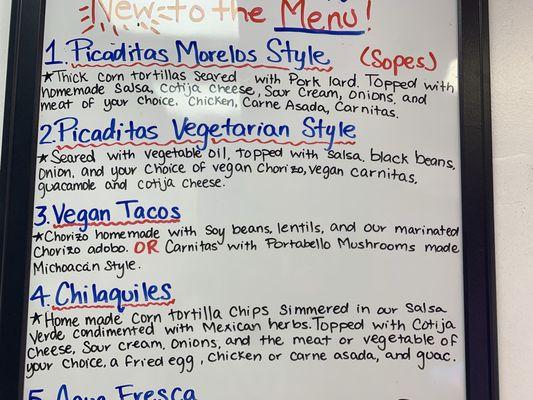 New to the Menu!
1. Picaditas Morelos Style (Sopes)
★Thick corn tortillas seared with Pork lard. Topped with
homemade Salsa, cotija cheese, Sour Cream, onions, and
meat of your choice. Chicken, Carne Asada, Carnitas.
2. Picaditas Vegetarian Style
★Seared with vegetable oil, topped with salsa, black beans,
onion, and your choice of vegan chorizo, vegan carnitas,
guacamole and cotija cheese.
3. Vegan Tacos
★Chorizo homemade with Soy beans, lentils, and our marinated
Chorizo adobo. OR Carnitas with Portabello Mushrooms made
Michoacán Style.
4. Chilaquiles
★Home made Corn tortilla Chips Simmered in our Salsa
Verde condimented with Mexican herbs. Topped with Cotija
Cheese, Sour cream, Onions, and the meat or vegetable of
your Choice, a fried egg, Chicken or carne asada, and guac.
5. Agua Fresca